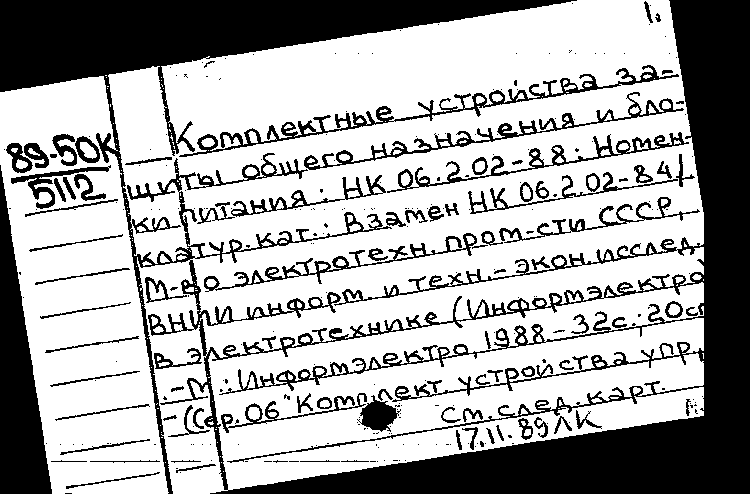 1.
89-50К
5112
Комплектные устройства за-
щиты общего назначения и бло-
ки питания: НК 06.2.02-88: Номен-
клатур. кат.: Взамен НК 06.2.02-84/
М-во электротехн. пром-сти СССР,
ВНИИ информ. и техн.-экон. исслед.
в электротехнике (Информэлектро)
.-М.: Информэлектро, 1988.-32с.; 20см
-(Сер. 06 "Комплект. устройства упр.
См. след. карт.
17.11.89ЛК